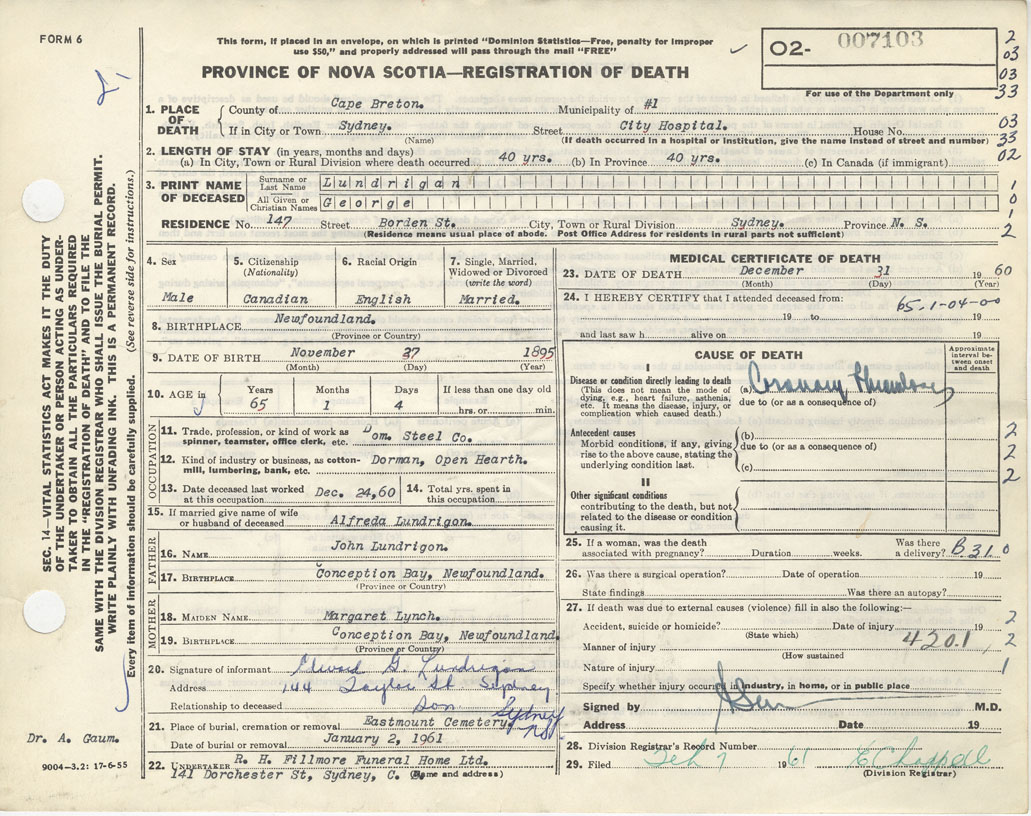 FORM 6
This form, if placed in an envelope, on which is printed "Dominion Statistics—Free, penalty for improper
use $50," and properly addressed will pass through the mail "FREE"
PROVINCE OF NOVA SCOTIA—REGISTRATION OF DEATH
O2- 007103
For use of the Department only
2
03
03
33
1. PLACE OF DEATH
County of Cape Breton. Municipality of #1
If in City or Town Sydney. Street City Hospital. House No. 03
(Name) (If death occurred in a hospital or institution, give the name instead of street and number) 33
2. LENGTH OF STAY (in years, months and days)
(a) In City, Town or Rural Division where death occurred 40 yrs. (b) In Province 40 yrs. (c) In Canada (if immigrant) 02
3. PRINT NAME OF DECEASED
Surname or Last Name Lundrigan 1
All Given or Christian Names George 0
1
RESIDENCE No. 147 Street Borden St. City, Town or Rural Division Sydney. Province N. S. 2
(Residence means usual place of abode. Post Office Address for residents in rural parts not sufficient)
4. Sex
Male
5. Citizenship
(Nationality)
Canadian
6. Racial Origin
English
7. Single, Married,
Widowed or Divorced
(write the word)
Married.
8. BIRTHPLACE Newfoundland.
(Province or Country)
9. DATE OF BIRTH November 27 1895
(Month) (Day) (Year)
10. AGE in
Years 65
Months 1
Days 4
If less than one day old
hrs. or min.
OCCUPATION
11. Trade, profession, or kind of work as
spinner, teamster, office clerk, etc. Dom. Steel Co.
12. Kind of industry or business, as cotton-
mill, lumbering, bank, etc. Dorman, Open Hearth.
13. Date deceased last worked
at this occupation Dec. 24,60
14. Total yrs. spent in
this occupation
15. If married give name of wife
or husband of deceased Alfreda Lundrigon.
FATHER
16. NAME John Lundrigon.
17. BIRTHPLACE Conception Bay, Newfoundland.
(Province or Country)
MOTHER
18. MAIDEN NAME Margaret Lynch.
19. BIRTHPLACE Conception Bay, Newfoundland.
(Province or Country)
20. Signature of informant Edward G. Lundrigan
Address 144 Taylor St Sydney
Relationship to deceased Son Sydney NS
21. Place of burial, cremation or removal Eastmount Cemetery,
Date of burial or removal January 2, 1961
22. UNDERTAKER R. H. Fillmore Funeral Home Ltd.
141 Dorchester St, Sydney, C. B.
(Name and address)
MEDICAL CERTIFICATE OF DEATH
23. DATE OF DEATH December 31 1960
(Month) (Day) (Year)
24. I HEREBY CERTIFY that I attended deceased from: 65.1-04-00
19 to 19
and last saw h alive on 19
CAUSE OF DEATH
Approximate
interval be-
tween onset
and death
I
Disease or condition directly leading to death
(This does not mean the mode of
dying, e.g., heart failure, asthenia,
etc. It means the disease, injury, or
complication which caused death.)
(a) Coronary Thrombosis
due to (or as a consequence of)
Antecedent causes
Morbid conditions, if any, giving
rise to the above cause, stating the
underlying condition last.
(b)
due to (or as a consequence of)
(c)
2
2
2
2
II
Other significant conditions
contributing to the death, but not
related to the disease or condition
causing it.
25. If a woman, was the death Was there
associated with pregnancy? Duration weeks. a delivery? B310
26. Was there a surgical operation? Date of operation 19
State findings Was there an autopsy?
27. If death was due to external causes (violence) fill in also the following:— 2
Accident, suicide or homicide? Date of injury 19
(State which)
Manner of injury 420.1 2
(How sustained)
Nature of injury 1
Specify whether injury occurred in industry, in home, or in public place
Signed by M.D.
Address Date 19
28. Division Registrar's Record Number
29. Filed Feb 7 1961 E Chappell
(Division Registrar)
SEC. 14—VITAL STATISTICS ACT MAKES IT THE DUTY
OF THE UNDERTAKER OR PERSON ACTING AS UNDER-
TAKER TO OBTAIN ALL THE PARTICULARS REQUIRED
IN THE "REGISTRATION OF DEATH" AND TO FILE THE
SAME WITH THE DIVISION REGISTRAR WHO SHALL ISSUE THE BURIAL PERMIT.
WRITE PLAINLY WITH UNFADING INK. THIS IS A PERMANENT RECORD.
Every item of information should be carefully supplied. (See reverse side for instructions.)
Dr. A. Gaum.
9004-3.2: 17-6-55